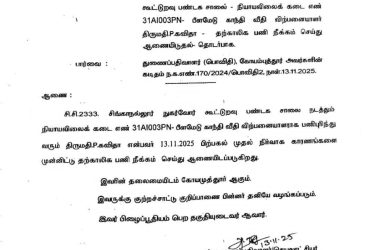 கூட்டுறவு பண்டக சாலை - நியாயவிலைக் கடை எண்
31AI003PN- பீளமேடு காந்தி வீதி விற்பனையாளர்
திருமதி.P.கவிதா - தற்காலிக பணி நீக்கம் செய்து
ஆணையிடுதல்- தொடர்பாக.
பார்வை : துணைப்பதிவாளர் (பொவிதி), கோயம்புத்தூர் அவர்களின்
கடிதம் ந.க.எண்.170/2024/பொவிதி2, நாள்.13.11.2025.
ஆணை :
சி.சி.2333. சிங்காநல்லூர் நுகர்வோர் கூட்டுறவு பண்டக சாலை நடத்தும்
நியாயவிலைக் கடை எண் 31AI003PN- பீளமேடு காந்தி வீதி விற்பனையாளராக பணிபுரிந்து
வரும் திருமதி.P.கவிதா என்பவர் 13.11.2025 பிற்பகல் முதல் நிர்வாக காரணங்களை
முன்னிட்டு தற்காலிக பணி நீக்கம் செய்து ஆணையிடப்படுகிறது.
இவரின் தலைமையிடம் கோயமுத்தூர் ஆகும்.
இவருக்கு குற்றச்சாட்டு குறிப்பாணை பின்னர் தனியே வழங்கப்படும்.
இவர் பிழைப்பூதியம் பெற தகுதியுடையவர் ஆவார்.
13-11-25